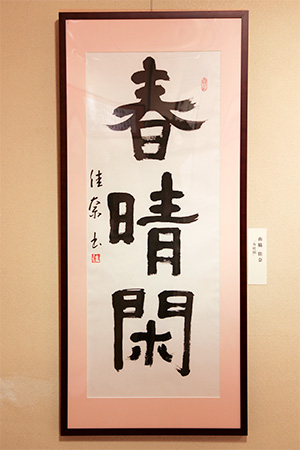 春晴閑
佳奈書